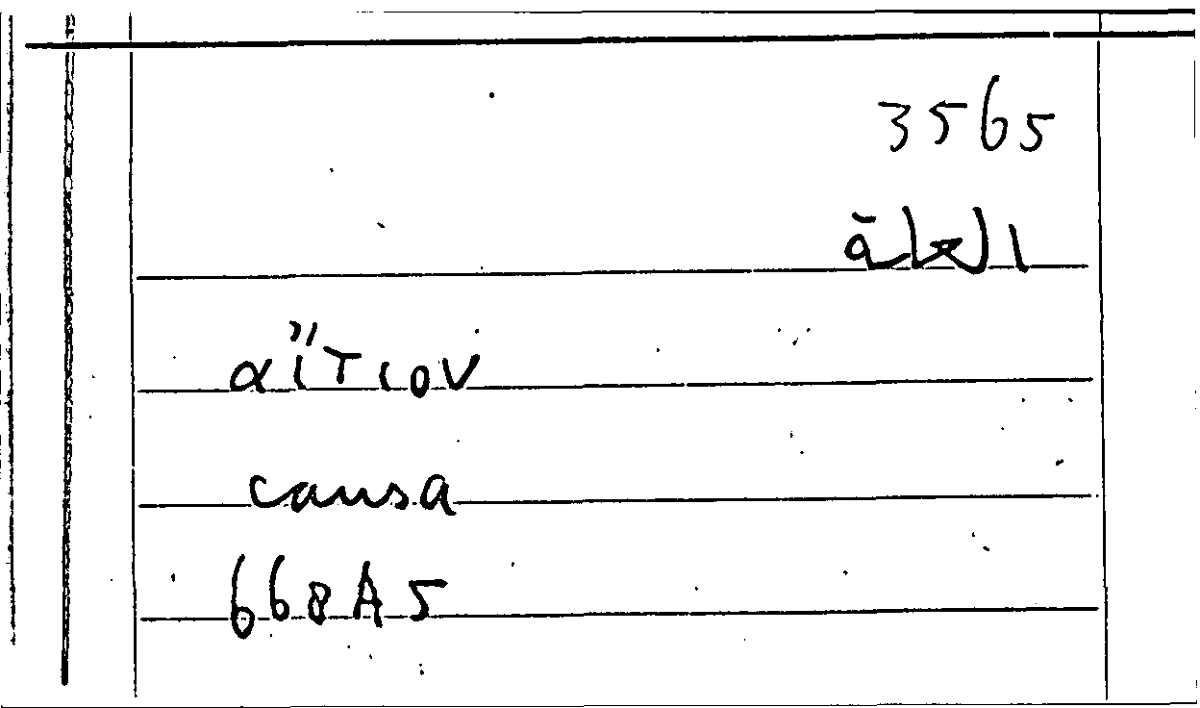 3565
العلة
αἴτιον
causa
668A5